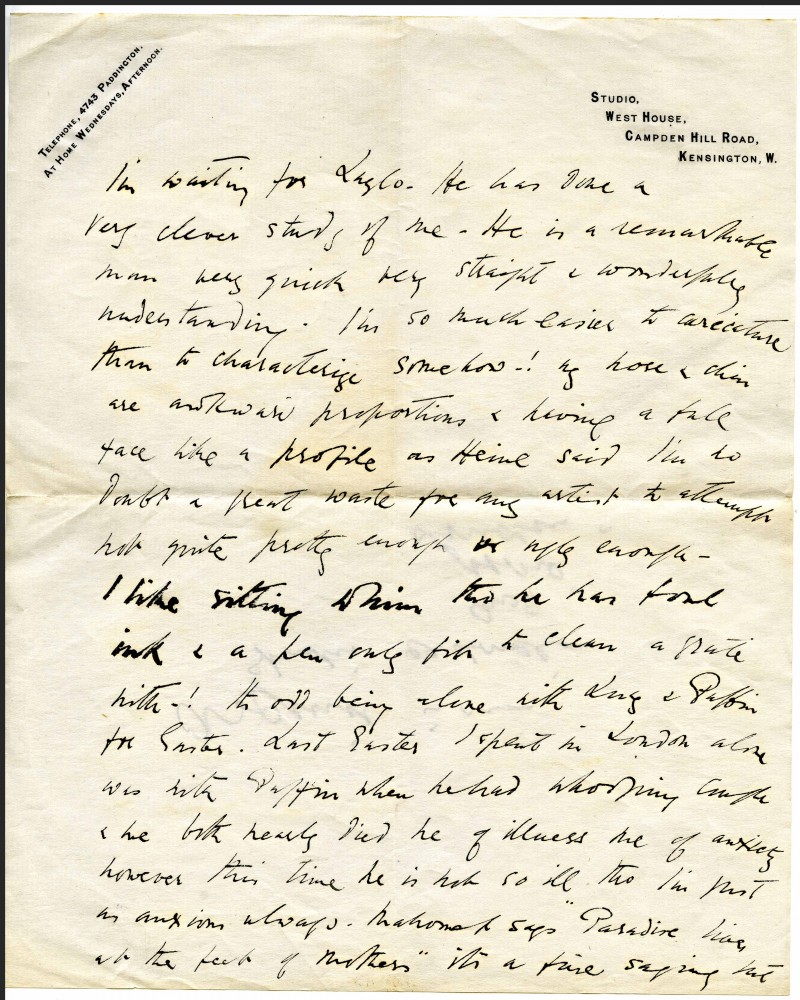 TELEPHONE, 4743 PADDINGTON.
AT HOME WEDNESDAYS, AFTERNOON.
STUDIO,
WEST HOUSE,
CAMPDEN HILL ROAD,
KENSINGTON, W.
I'm waiting for Laszlo. He has done a
very clever study of me - He is a remarkable
man very quick very straight & wonderfully
understanding. I'm so much easier to caricature
than to characterize somehow -! my nose & chin
are awkward proportions & having a full
face like a profile as Heine said I'm no
doubt a great waste for any artist to attempt
not quite pretty enough or ugly enough -
I like sitting to him tho he has foul
ink & a pen only fit to clean a grate
with -! It's odd being alone with Lucy & Puffin
for Easter. Last Easter I spent in London alone
was with Puffin when he had whooping cough
& we both nearly died he of illness me of anxiety
however this time he is not so ill tho I'm just
as anxious always. Mahomet says "Paradise lies
at the feet of mothers" it's a fine saying but